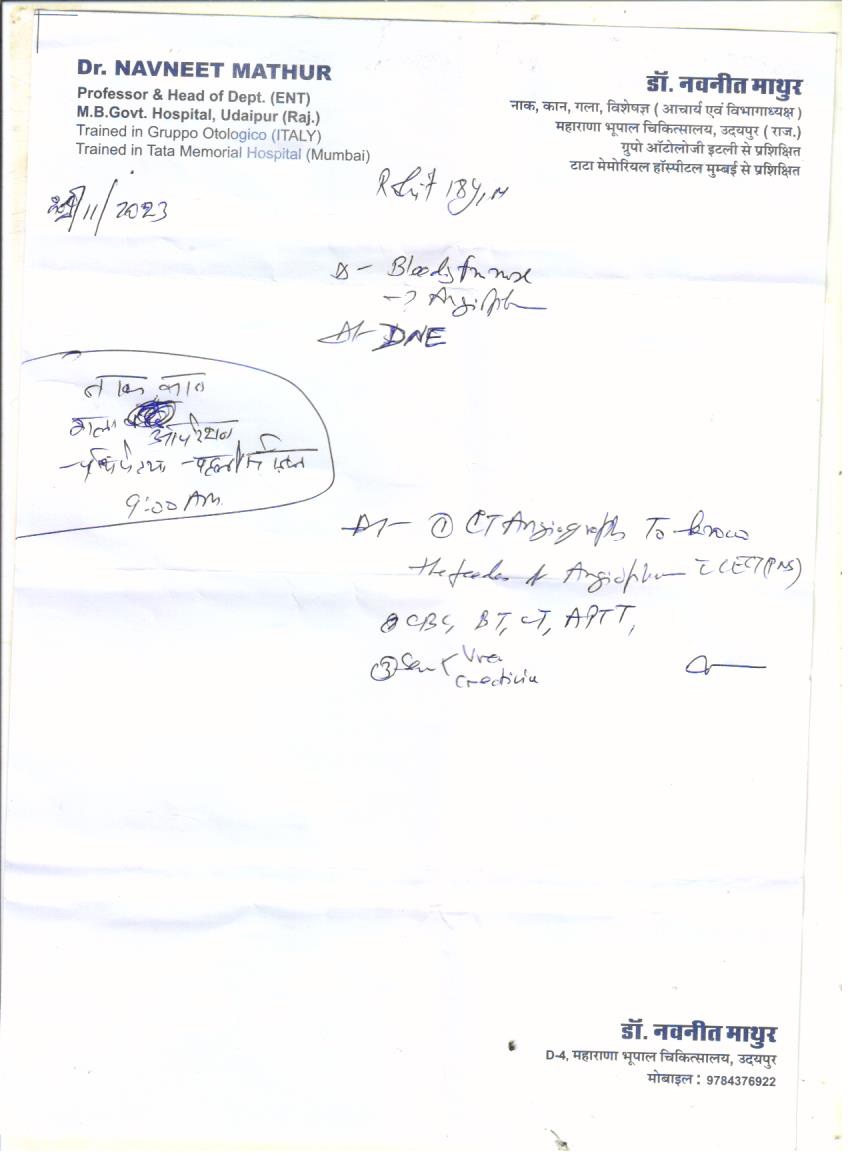 Dr. NAVNEET MATHUR
Professor & Head of Dept. (ENT)
M.B.Govt. Hospital, Udaipur (Raj.)
Trained in Gruppo Otologico (ITALY)
Trained in Tata Memorial Hospital (Mumbai)
डॉ. नवनीत माथुर
नाक, कान, गला, विशेषज्ञ ( आचार्य एवं विभागाध्यक्ष )
महाराणा भूपाल चिकित्सालय, उदयपुर ( राज.)
ग्रुपो ऑटोलोजी इटली से प्रशिक्षित
टाटा मेमोरियल हॉस्पीटल मुम्बई से प्रशिक्षित
/11/2023
18y, M
Bleeds from nose
DNE
नाक कान
गला
ऑपरेशन
9:00 AM
① CT Angiography To know
the feeder of CECT (PNS)
② CBC, BT, CT, APTT,
③ Urea
Creatinin
डॉ. नवनीत माथुर
D-4, महाराणा भूपाल चिकित्सालय, उदयपुर
मोबाइल : 9784376922